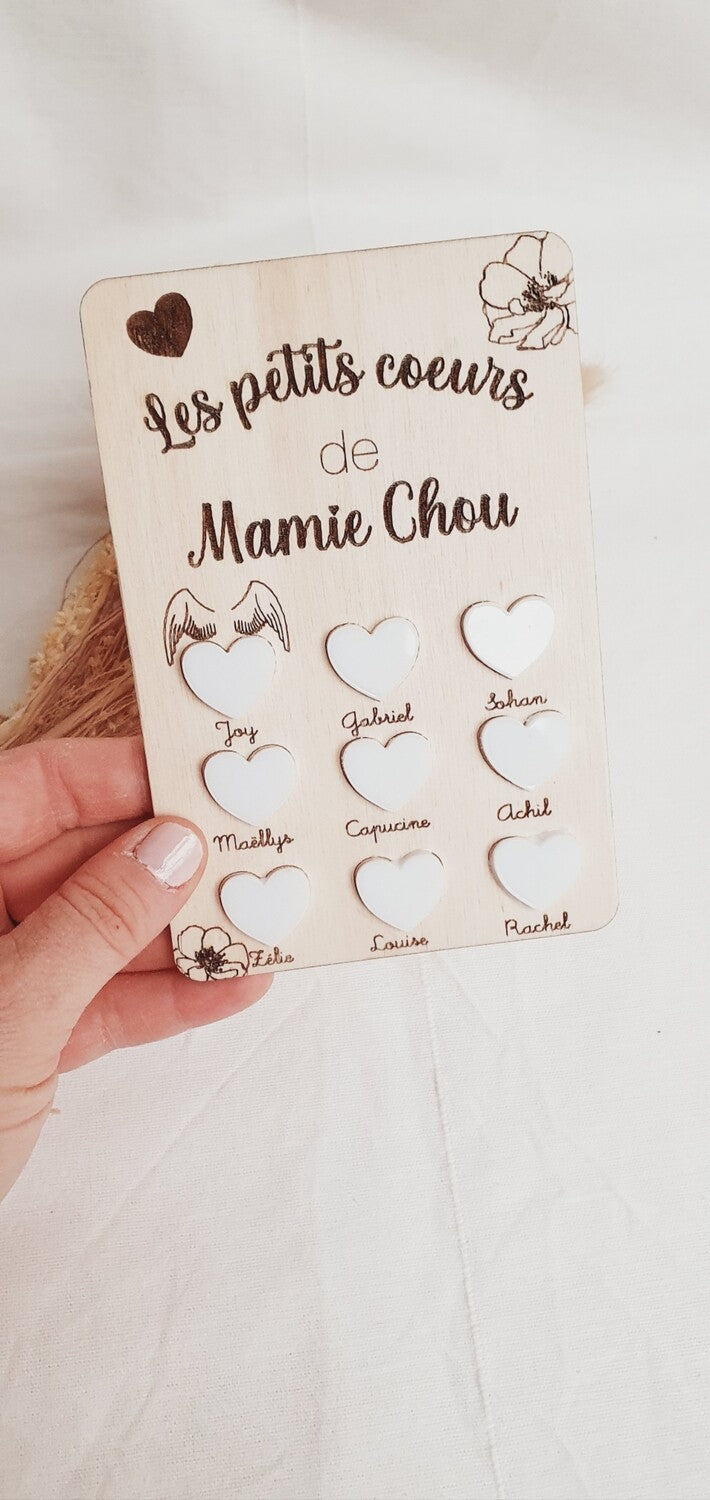 Les petits coeurs
de
Mamie Chou
Joy Gabriel Sohan
Maëllys Capucine Achil
Zélie Louise Rachel